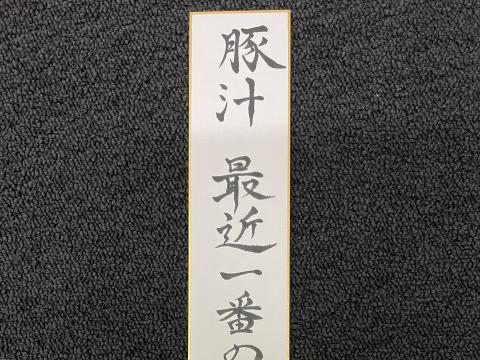 豚汁 最近一番の